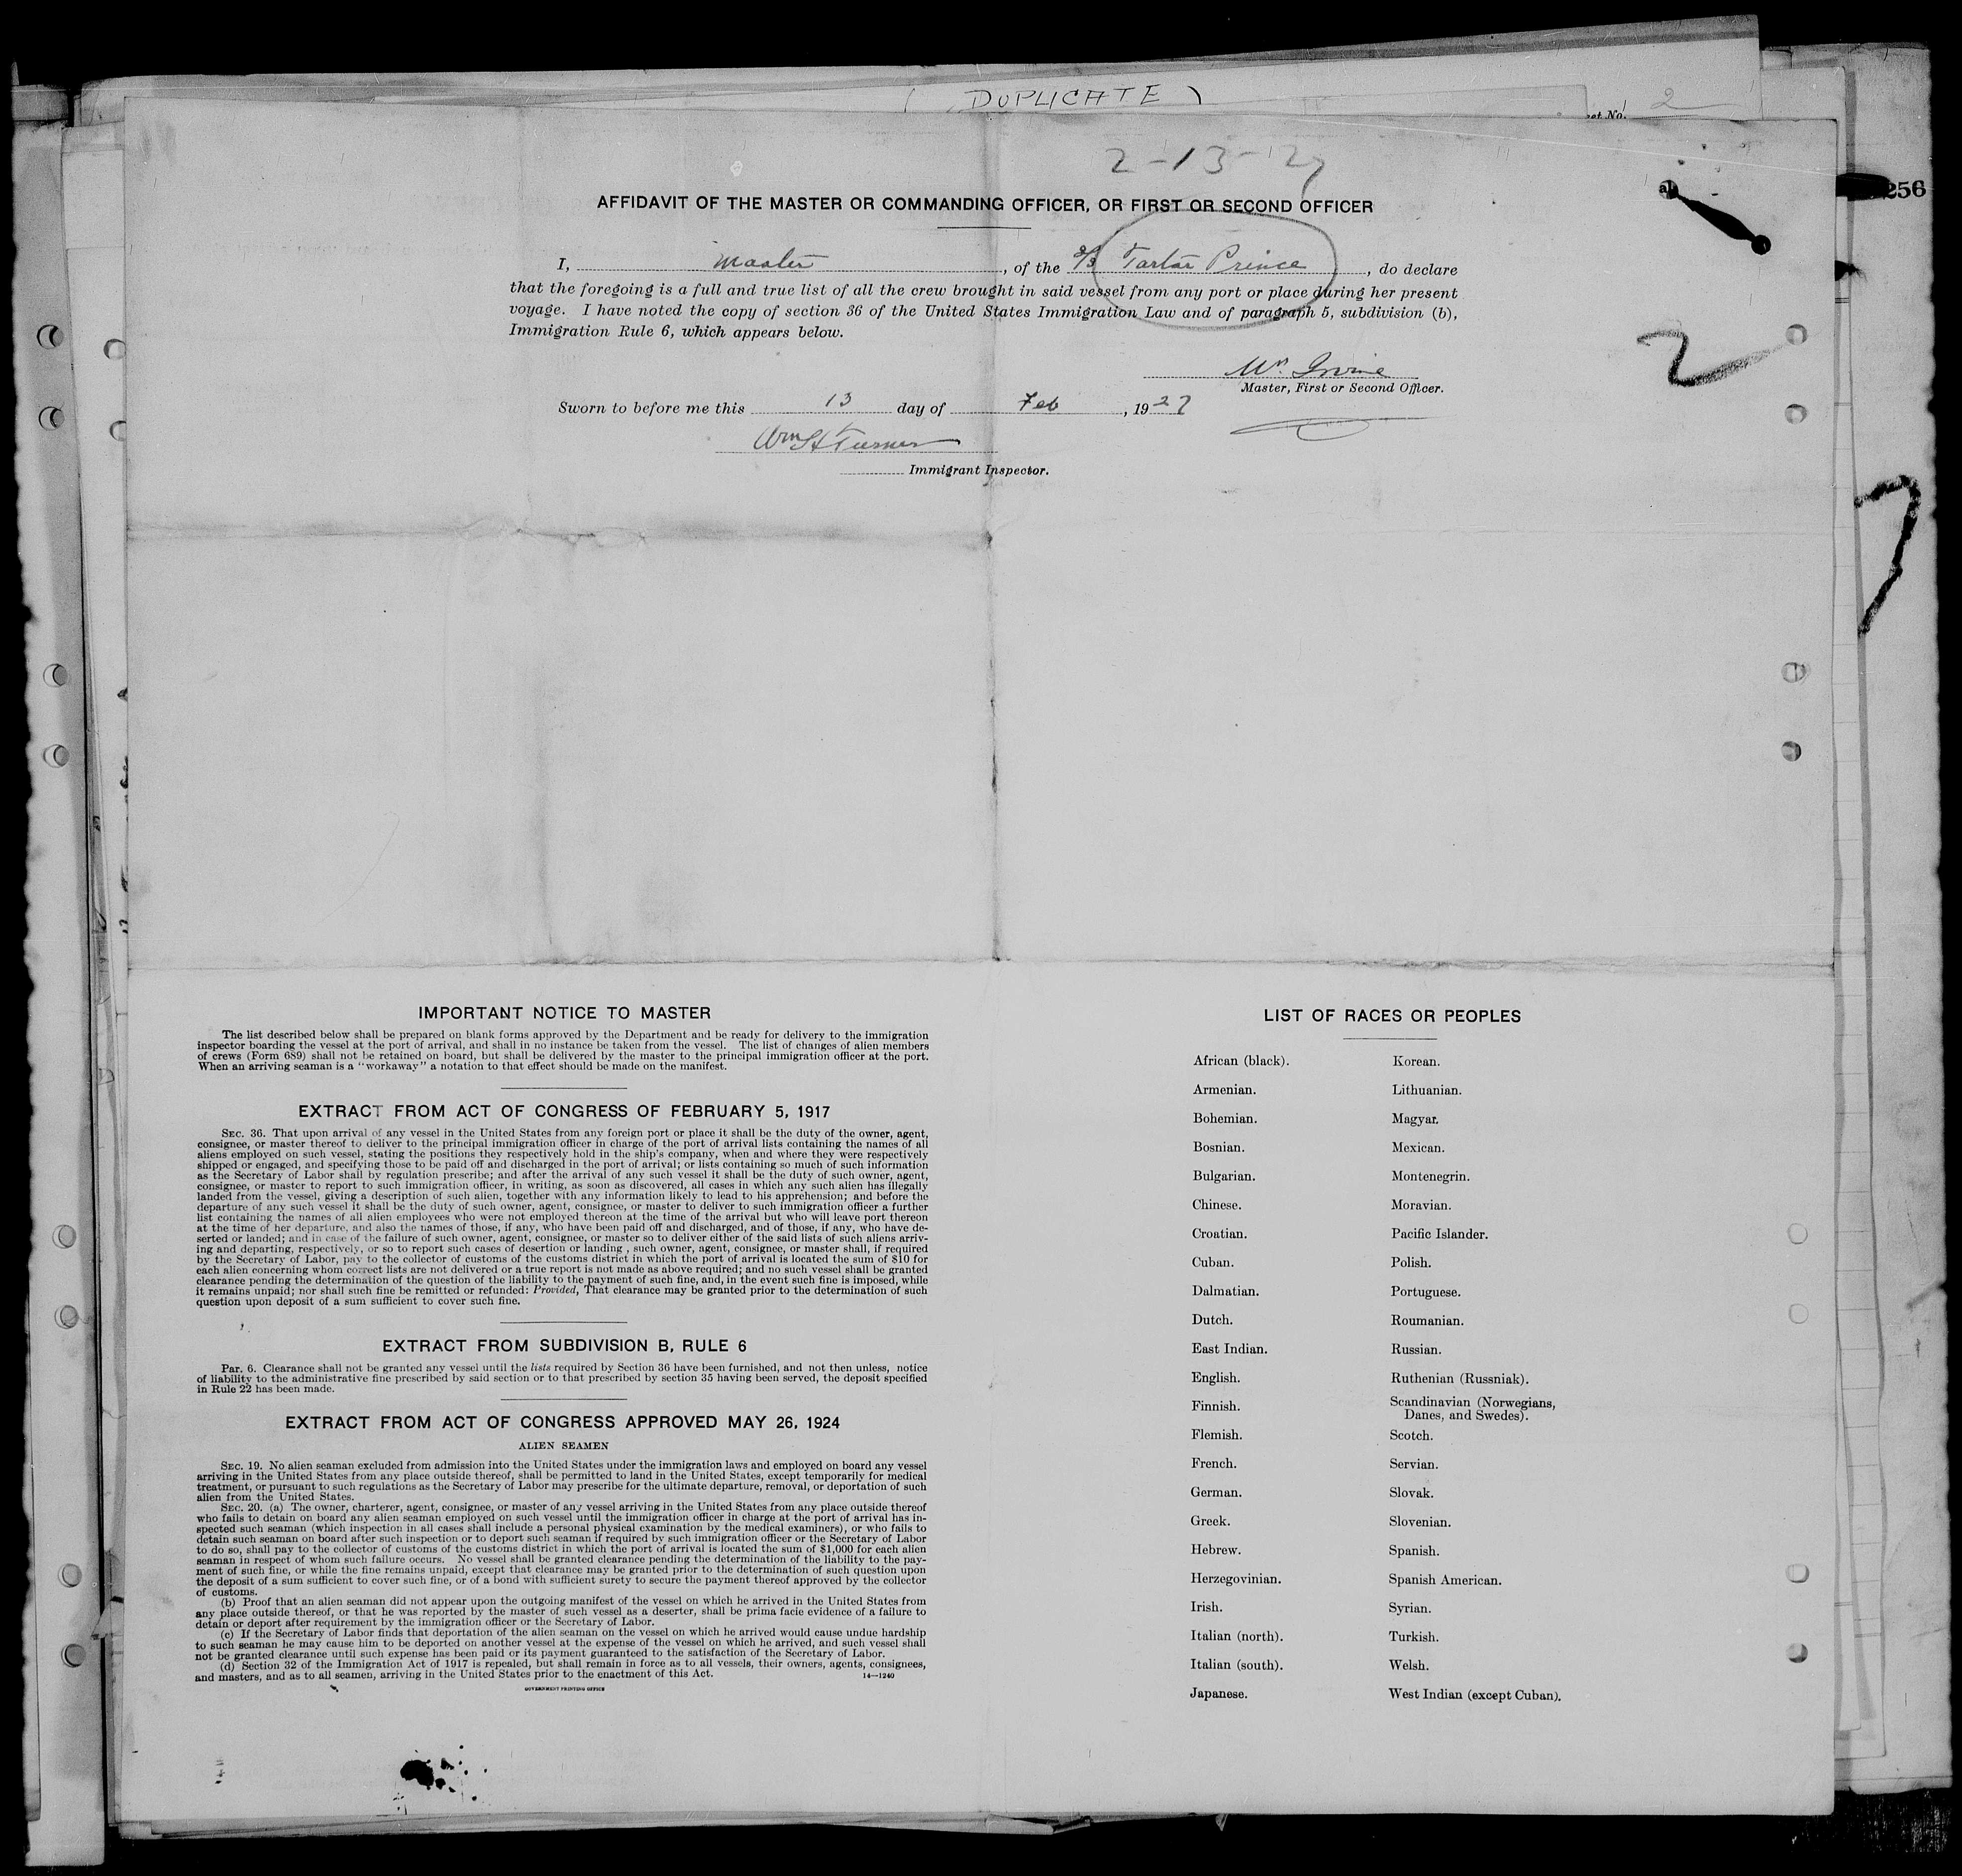 ( DUPLICATE )
et No. 2
2-13-27
256
AFFIDAVIT OF THE MASTER OR COMMANDING OFFICER, OR FIRST OR SECOND OFFICER
I, Master, of the S/S Tartar Prince, do declare
that the foregoing is a full and true list of all the crew brought in said vessel from any port or place during her present
voyage. I have noted the copy of section 36 of the United States Immigration Law and of paragraph 5, subdivision (b),
Immigration Rule 6, which appears below.
2
Wm. Irvine
Master, First or Second Officer.
Sworn to before me this 13 day of Feb, 1927
Wm H Turner
Immigrant Inspector.
7
IMPORTANT NOTICE TO MASTER
The list described below shall be prepared on blank forms approved by the Department and be ready for delivery to the immigration
inspector boarding the vessel at the port of arrival, and shall in no instance be taken from the vessel. The list of changes of alien members
of crews (Form 689) shall not be retained on board, but shall be delivered by the master to the principal immigration officer at the port.
When an arriving seaman is a "workaway" a notation to that effect should be made on the manifest.
EXTRACT FROM ACT OF CONGRESS OF FEBRUARY 5, 1917
SEC. 36. That upon arrival of any vessel in the United States from any foreign port or place it shall be the duty of the owner, agent,
consignee, or master thereof to deliver to the principal immigration officer in charge of the port of arrival lists containing the names of all
aliens employed on such vessel, stating the positions they respectively hold in the ship's company, when and where they were respectively
shipped or engaged, and specifying those to be paid off and discharged in the port of arrival; or lists containing so much of such information
as the Secretary of Labor shall by regulation prescribe; and after the arrival of any such vessel it shall be the duty of such owner, agent,
consignee, or master to report to such immigration officer, in writing, as soon as discovered, all cases in which any such alien has illegally
landed from the vessel, giving a description of such alien, together with any information likely to lead to his apprehension; and before the
departure of any such vessel it shall be the duty of such owner, agent, consignee, or master to deliver to such immigration officer a further
list containing the names of all alien employees who were not employed thereon at the time of the arrival but who will leave port thereon
at the time of her departure, and also the names of those, if any, who have been paid off and discharged, and of those, if any, who have de-
serted or landed; and in case of the failure of such owner, agent, consignee, or master so to deliver either of the said lists of such aliens arriv-
ing and departing, respectively, or so to report such cases of desertion or landing , such owner, agent, consignee, or master shall, if required
by the Secretary of Labor, pay to the collector of customs of the customs district in which the port of arrival is located the sum of $10 for
each alien concerning whom correct lists are not delivered or a true report is not made as above required; and no such vessel shall be granted
clearance pending the determination of the question of the liability to the payment of such fine, and, in the event such fine is imposed, while
it remains unpaid; nor shall such fine be remitted or refunded: Provided, That clearance may be granted prior to the determination of such
question upon deposit of a sum sufficient to cover such fine.
EXTRACT FROM SUBDIVISION B, RULE 6
Par. 6. Clearance shall not be granted any vessel until the lists required by Section 36 have been furnished, and not then unless, notice
of liability to the administrative fine prescribed by said section or to that prescribed by section 35 having been served, the deposit specified
in Rule 22 has been made.
EXTRACT FROM ACT OF CONGRESS APPROVED MAY 26, 1924
ALIEN SEAMEN
SEC. 19. No alien seaman excluded from admission into the United States under the immigration laws and employed on board any vessel
arriving in the United States from any place outside thereof, shall be permitted to land in the United States, except temporarily for medical
treatment, or pursuant to such regulations as the Secretary of Labor may prescribe for the ultimate departure, removal, or deportation of such
alien from the United States.
SEC. 20. (a) The owner, charterer, agent, consignee, or master of any vessel arriving in the United States from any place outside thereof
who fails to detain on board any alien seaman employed on such vessel until the immigration officer in charge at the port of arrival has in-
spected such seaman (which inspection in all cases shall include a personal physical examination by the medical examiners), or who fails to
detain such seaman on board after such inspection or to deport such seaman if required by such immigration officer or the Secretary of Labor
to do so, shall pay to the collector of customs of the customs district in which the port of arrival is located the sum of $1,000 for each alien
seaman in respect of whom such failure occurs. No vessel shall be granted clearance pending the determination of the liability to the pay-
ment of such fine, or while the fine remains unpaid, except that clearance may be granted prior to the determination of such question upon
the deposit of a sum sufficient to cover such fine, or of a bond with sufficient surety to secure the payment thereof approved by the collector
of customs.
(b) Proof that an alien seaman did not appear upon the outgoing manifest of the vessel on which he arrived in the United States from
any place outside thereof, or that he was reported by the master of such vessel as a deserter, shall be prima facie evidence of a failure to
detain or deport after requirement by the immigration officer or the Secretary of Labor.
(c) If the Secretary of Labor finds that deportation of the alien seaman on the vessel on which he arrived would cause undue hardship
to such seaman he may cause him to be deported on another vessel at the expense of the vessel on which he arrived, and such vessel shall
not be granted clearance until such expense has been paid or its payment guaranteed to the satisfaction of the Secretary of Labor.
(d) Section 32 of the Immigration Act of 1917 is repealed, but shall remain in force as to all vessels, their owners, agents, consignees,
and masters, and as to all seamen, arriving in the United States prior to the enactment of this Act. 14—1240
GOVERNMENT PRINTING OFFICE
LIST OF RACES OR PEOPLES
African (black). Korean.
Armenian. Lithuanian.
Bohemian. Magyar.
Bosnian. Mexican.
Bulgarian. Montenegrin.
Chinese. Moravian.
Croatian. Pacific Islander.
Cuban. Polish.
Dalmatian. Portuguese.
Dutch. Roumanian.
East Indian. Russian.
English. Ruthenian (Russniak).
Finnish. Scandinavian (Norwegians,
Danes, and Swedes).
Flemish. Scotch.
French. Servian.
German. Slovak.
Greek. Slovenian.
Hebrew. Spanish.
Herzegovinian. Spanish American.
Irish. Syrian.
Italian (north). Turkish.
Italian (south). Welsh.
Japanese. West Indian (except Cuban).